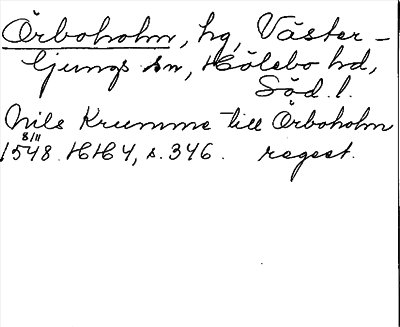 Örboholm, hg, Väster-
ljungs sn, Hölebo hd,
Söd. l.
Nils Krumme till Örboholm
8/11
1548. HH 4, s. 346. regest.